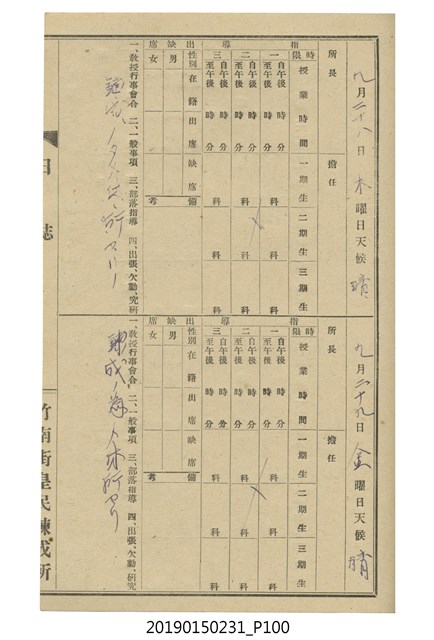 九月二十八日 木曜日 天候 晴
所長
擔任
指導
時限 授業時間 一期生 二期生 三期生
一 自午後 時 分 至午後 時 分 科 科 科
二 自午後 時 分 至午後 時 分 科 科 科
三 自午後 時 分 至午後 時 分 科 科 科
出缺席
性別 在籍 出席 缺席
男
女
備考
一、教授行事會合 二、一般事項 三、部落指導 四、出張、欠勤、研究
九月二十九日 金曜日 天候 晴
所長
擔任
指導
時限 授業時間 一期生 二期生 三期生
一 自午後 時 分 至午後 時 分 科 科 科
二 自午後 時 分 至午後 時 分 科 科 科
三 自午後 時 分 至午後 時 分 科 科 科
出缺席
性別 在籍 出席 缺席
男
女
備考
一、教授行事會合 二、一般事項 三、部落指導 四、出張、欠勤、研究
日誌
竹南街皇民鍊成所
20190150231_P100